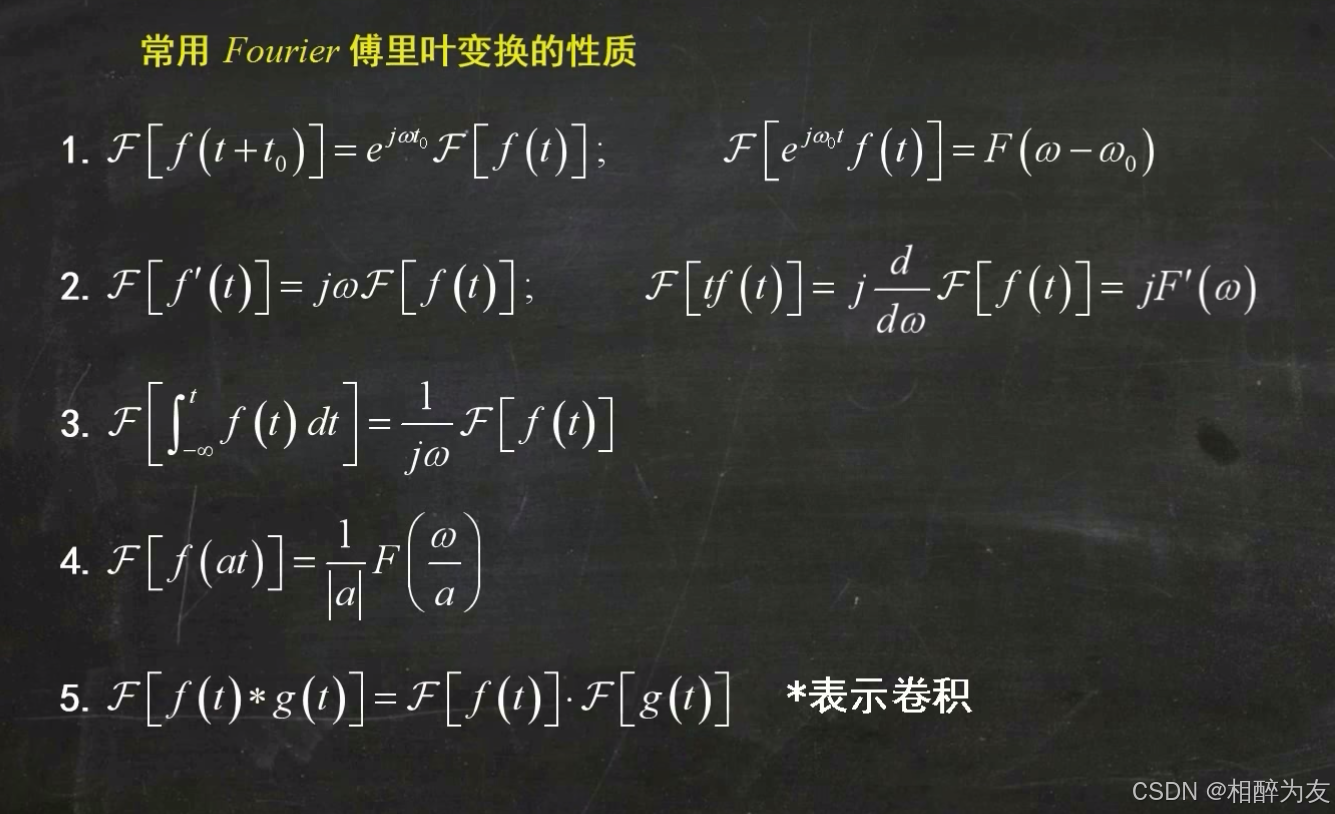 常用 Fourier 傅里叶变换的性质
1. ℱ[f(t+t₀)]=e^{jωt₀}ℱ[f(t)]; ℱ[e^{jω₀t}f(t)]=F(ω−ω₀)
2. ℱ[f′(t)]=jωℱ[f(t)]; ℱ[tf(t)]=j\frac{d}{dω}ℱ[f(t)]=jF′(ω)
3. ℱ[∫_{−∞}^{t}f(t)dt]=\frac{1}{jω}ℱ[f(t)]
4. ℱ[f(at)]=\frac{1}{|a|}F(\frac{ω}{a})
5. ℱ[f(t)*g(t)]=ℱ[f(t)]·ℱ[g(t)] *表示卷积
CSDN @相醉为友